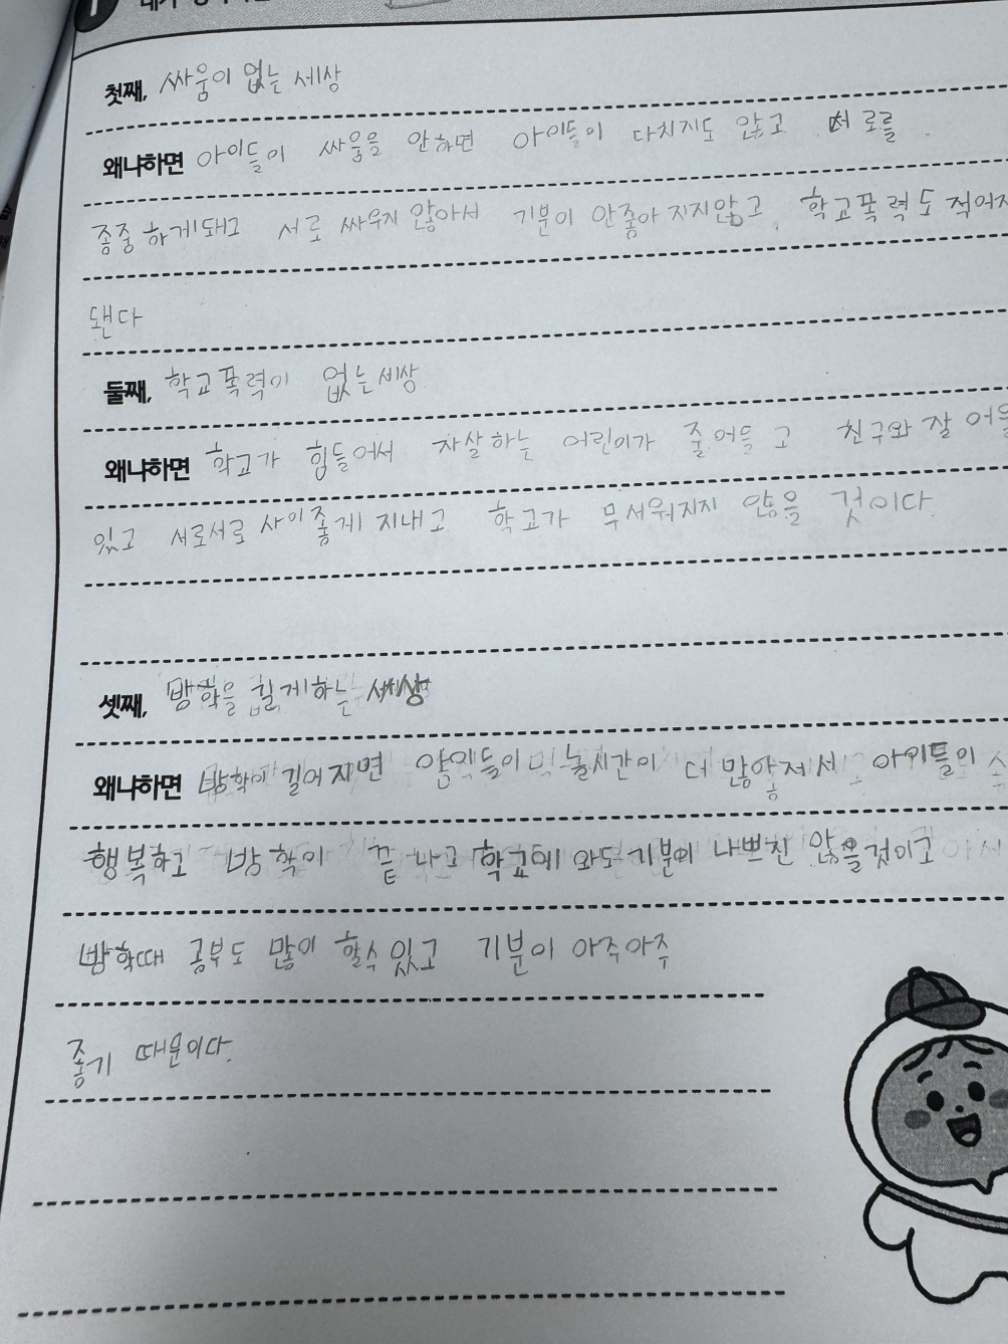 첫째, 싸움이 없는 세상
왜냐하면 아이들이 싸움을 안하면 아이들이 다치지도 않고 서로를
존중하게돼고 서로 싸우지 않아서 기분이 안좋아지지않고, 학교폭력도 적어지
됀다
둘째, 학교폭력이 없는세상
왜냐하면 학교가 힘들어서 자살하는 어린이가 줄어들고 친구와 잘 어울
있고 서로서로 사이좋게 지내고 학교가 무서워지지 않을 것이다.
셋째, 방학을 길게하는 세상
왜냐하면 방학이 길어지면 아이들이 놀시간이 더 많아져서 아이들이
행복하고 방학이 끝나고 학교에 와도 기분이 나쁘진 않을것이고
방학때 공부도 많이 할수있고 기분이 아주아주
좋기 때문이다.